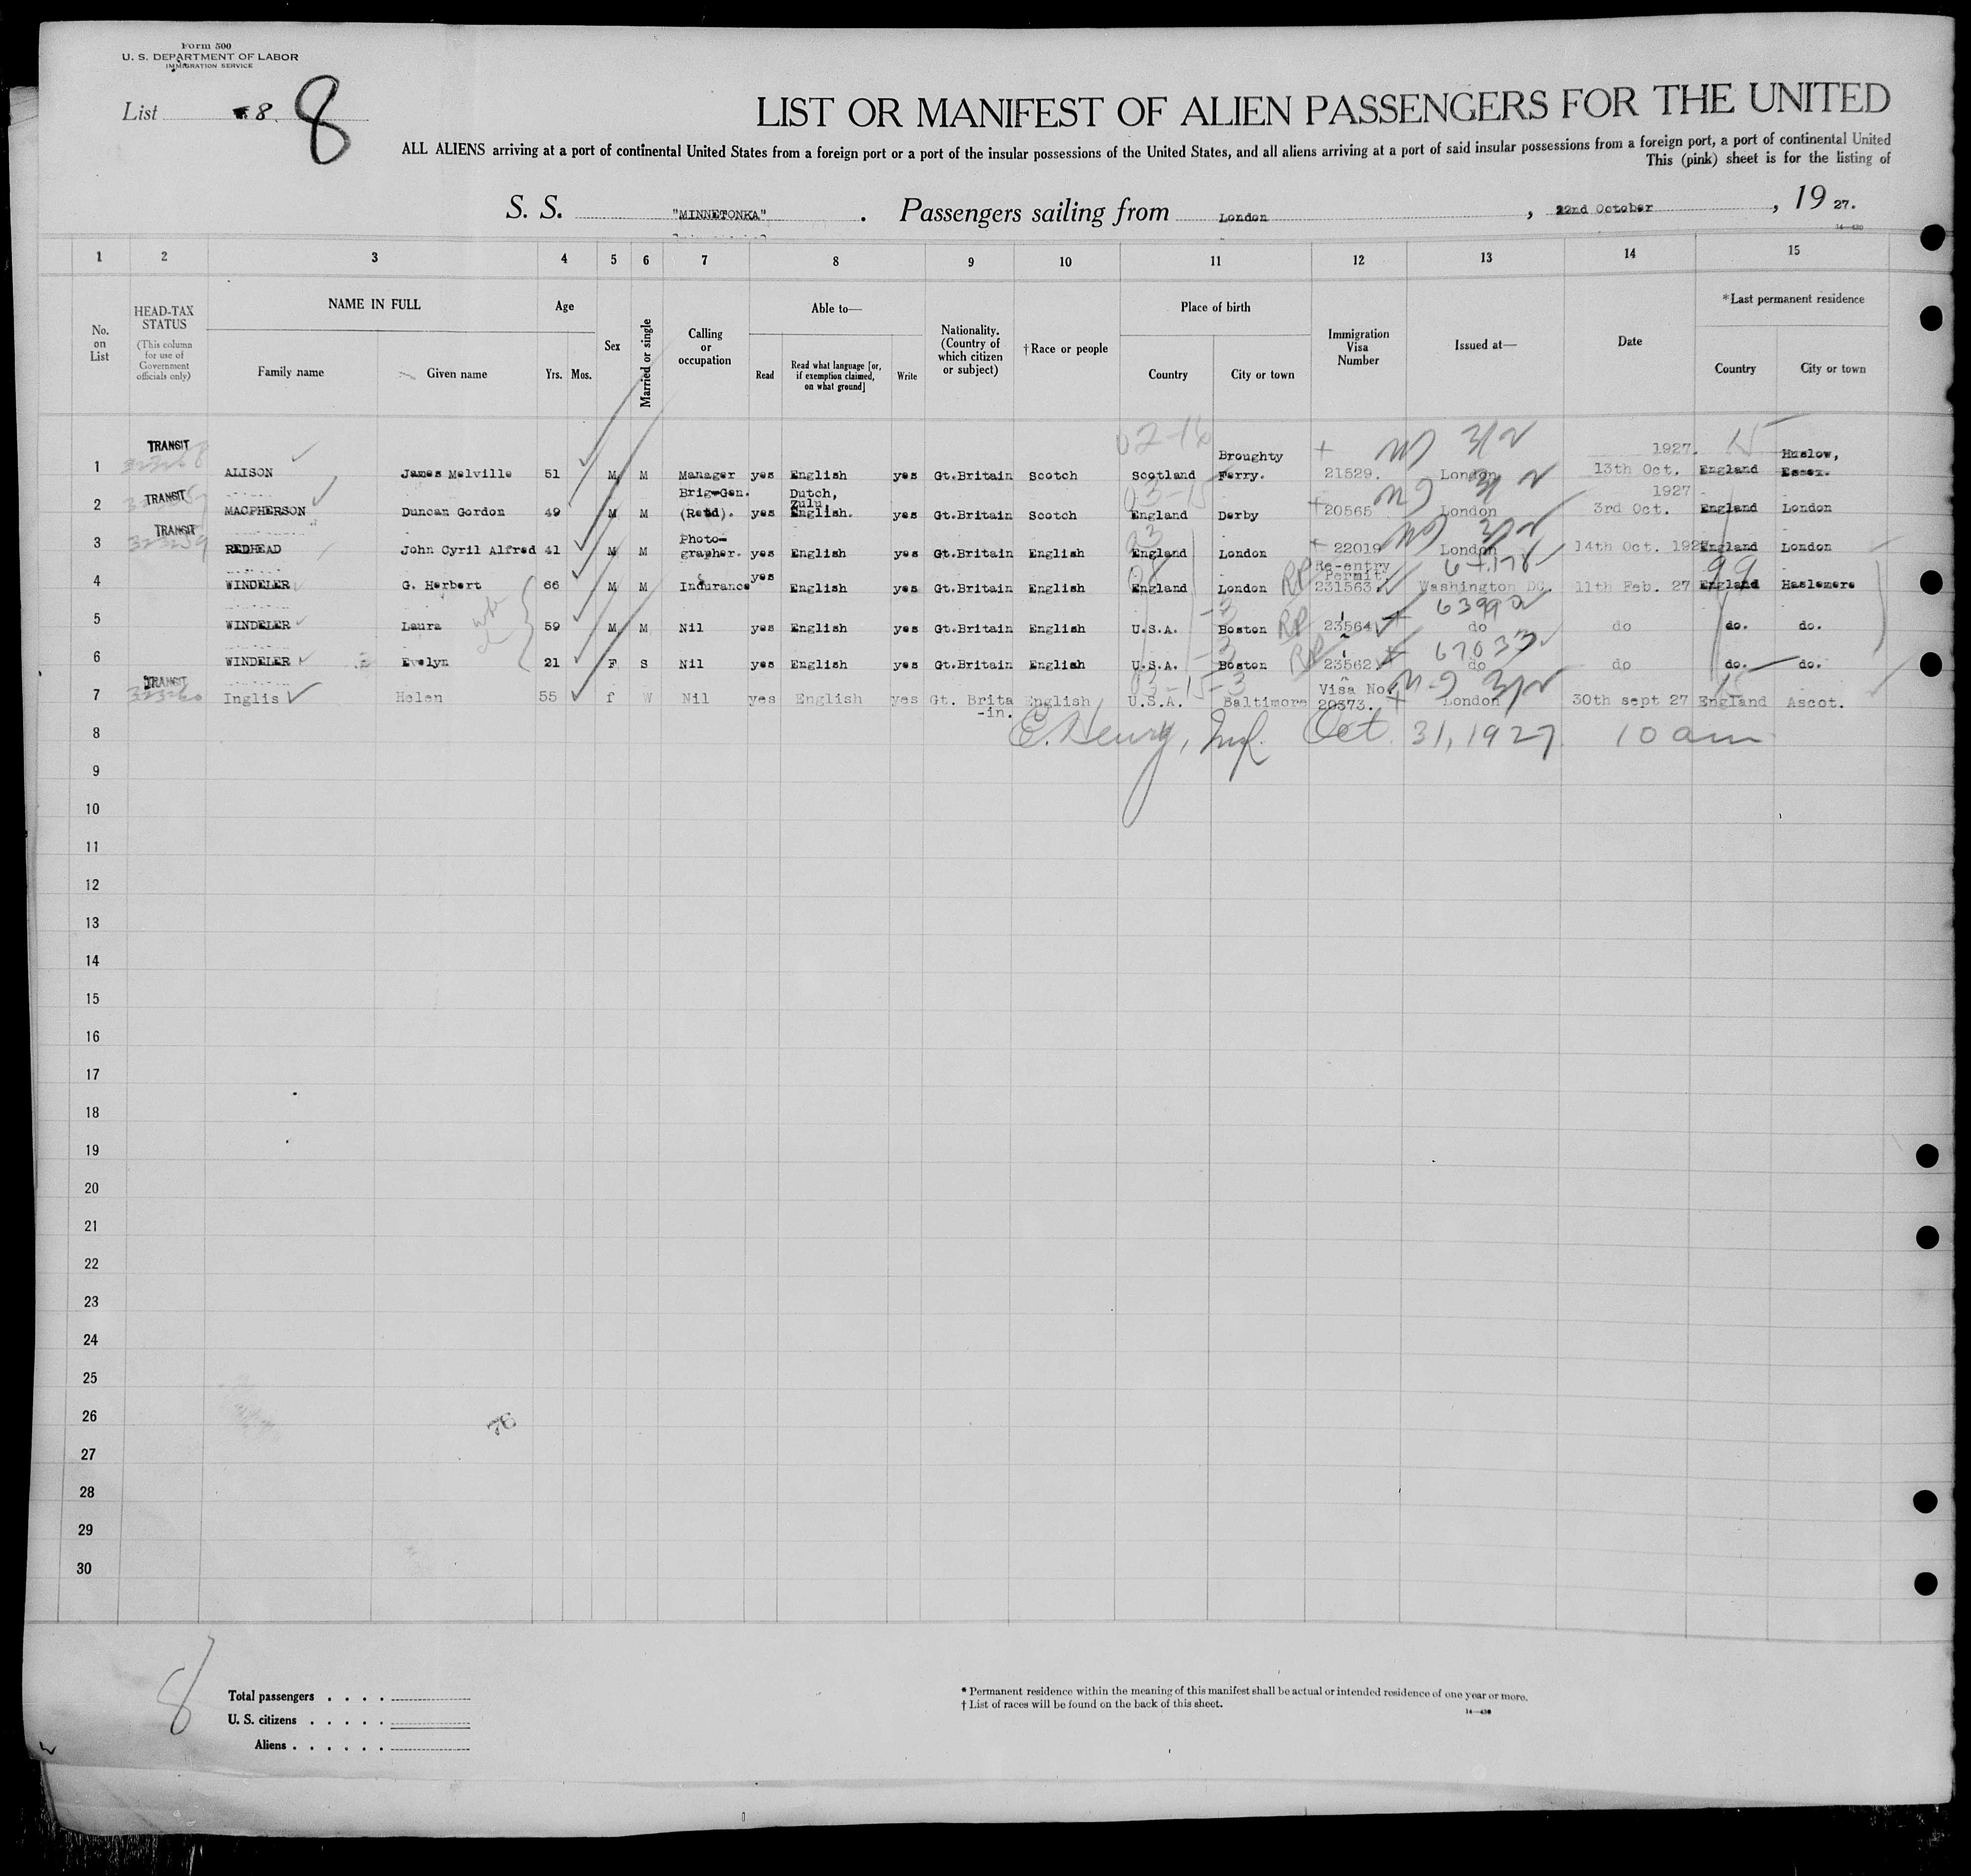 Form 500
U. S. DEPARTMENT OF LABOR
IMMIGRATION SERVICE
List 8. 8
LIST OR MANIFEST OF ALIEN PASSENGERS FOR THE UNITED
ALL ALIENS arriving at a port of continental United States from a foreign port or a port of the insular possessions of the United States, and all aliens arriving at a port of said insular possessions from a foreign port, a port of continental United
This (pink) sheet is for the listing of
S. S. "MINNETONKA" . Passengers sailing from London , 22nd October , 19 27.
14—430
1 2 3 4 5 6 7 8 9 10 11 12 13 14 15
No. on List
HEAD-TAX STATUS
(This column for use of Government officials only)
NAME IN FULL
Family name
Given name
Age
Yrs. Mos.
Sex
Married or single
Calling or occupation
Able to—
Read
Read what language [or, if exemption claimed, on what ground]
Write
Nationality. (Country of which citizen or subject)
† Race or people
Place of birth
Country
City or town
Immigration Visa Number
Issued at—
Date
*Last permanent residence
Country
City or town
02-16 3/2 15
1 TRANSIT ALISON James Melville 51 M M Manager yes English yes Gt.Britain Scotch Scotland Broughty Ferry. 21529. London 1927. 13th Oct. England Huslow, Essex.
03-15
2 TRANSIT MACPHERSON Duncan Gordon 49 M M Brig-Gen. (Retd). yes Dutch, Zulu, English. yes Gt.Britain Scotch England Derby 20565 London 1927 3rd Oct. England London
3 TRANSIT REDHEAD John Cyril Alfred 41 M M Photo-grapher. yes English yes Gt.Britain English England London 22019 London 14th Oct. 1927 England London
4 WINDELER G. Herbert 66 M M Indurance yes English yes Gt.Britain English England London RP Re-entry Permit 231563. Washington DC. 11th Feb. 27 99 England Haslemere
5 WINDELER Laura 59 M M Nil yes English yes Gt.Britain English U.S.A. Boston RP 23564 do do do. do.
6 WINDELER Evelyn 21 F S Nil yes English yes Gt.Britain English U.S.A. Boston RP 23562 67033 do do do. do.
03-15-3
7 TRANSIT Inglis Helen 55 f W Nil yes English yes Gt. Brita-in. English U.S.A. Baltimore Visa No. 20373. London 30th sept 27 England Ascot.
8 E. Henry, Insp. Oct. 31, 1927 10 am
9
10
11
12
13
14
15
16
17
18
19
20
21
22
23
24
25
26
27
28
29
30
8
Total passengers . . . .
U. S. citizens . . . . .
Aliens . . . . . .
* Permanent residence within the meaning of this manifest shall be actual or intended residence of one year or more.
† List of races will be found on the back of this sheet.
14—430